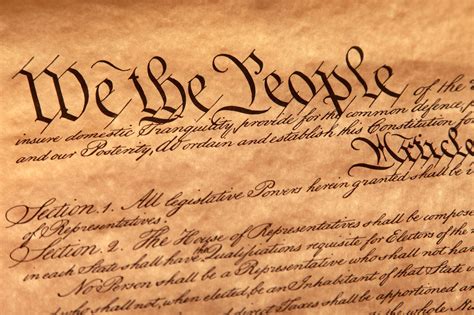 We the People of the
insure domestic Tranquility, provide for the common defence,
and our Posterity, do ordain and establish this Constitution fo
Article
Section. 1. All legislative Powers herein granted shall be
of Representatives.
Section. 2. The House of Representatives shall be compos
in each State shall have Qualifications requisite for Electors of the
No Person shall be a Representative who shall not ha
who shall not, when elected, be an Inhabitant of that State
direct Taxes shall be apportioned